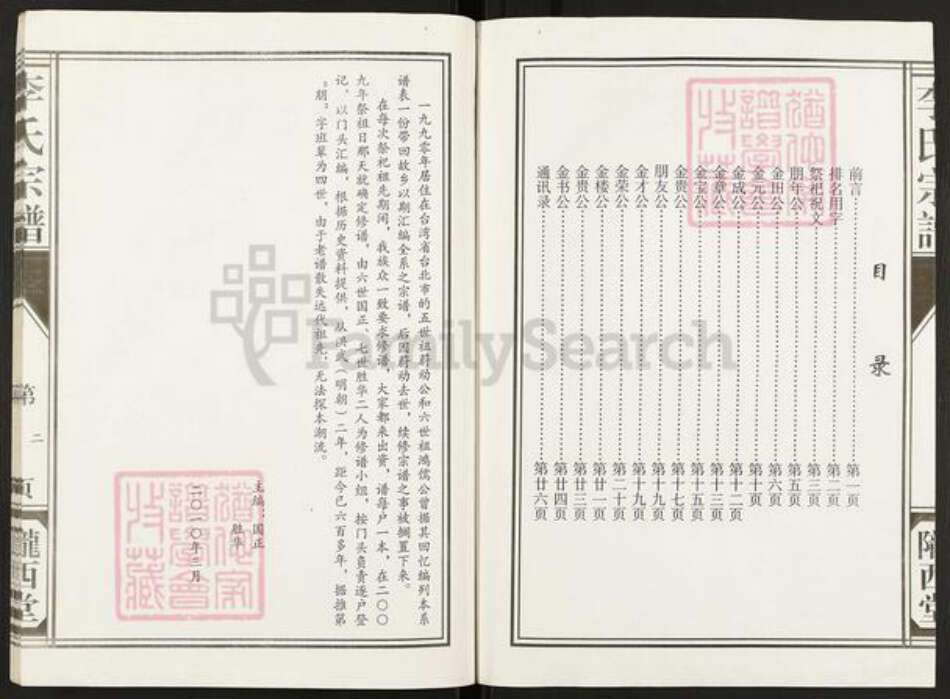 李氏宗譜
隴西堂
目录
前言……第一页
排名用字……第二页
祭祀祝文……第三页
朋年公……第五页
金田公……第六页
金元公……第十页
金成公……第十二页
金章公……第十三页
金宝公……第十五页
金贵公……第十七页
朋友公……第十九页
金才公……第十九页
金荣公……第二十页
金楼公……第廿一页
金贵公……第廿三页
金书公……第廿四页
通讯录……第廿六页
一九九0年居住在台湾省台北市的五世祖蔚动公和六世祖鸿儒公曾据其回忆编列本系
谱表一份带回故乡以期汇编全系之宗谱。后因蔚动去世，续修宗谱之事被搁置下来。
在每次祭祀祖先期间，我族众一致要求修谱，大家都来出资，谱每户一本，在二00
九年祭祖日那天就确定修谱，由六世国正、七世胜华二人为修谱小组，按门头负责逐户登
记，以门头汇编，根据历史资料提供，从洪武（明朝）二年，距今已六百多年，据推第
一朋。字班辈为四世，由于老谱散失远代祖先，无法探本潮流。
主编：国正
胜华
二0一0年三月
李氏宗譜
第二页
隴西堂
FamilySearch